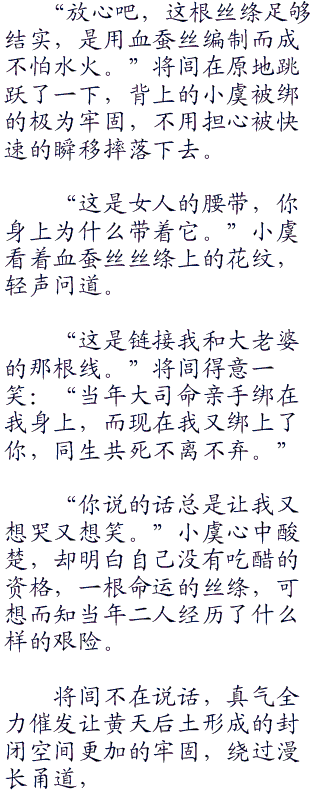 “放心吧，这根丝绦足够
结实，是用血蚕丝编制而成
不怕水火。”将闾在原地跳
跃了一下，背上的小虞被绑
的极为牢固，不用担心被快
速的瞬移摔落下去。
“这是女人的腰带，你
身上为什么带着它。”小虞
看着血蚕丝丝绦上的花纹，
轻声问道。
“这是链接我和大老婆
的那根线。”将闾得意一
笑：“当年大司命亲手绑在
我身上，而现在我又绑上了
你，同生共死不离不弃。”
“你说的话总是让我又
想哭又想笑。”小虞心中酸
楚，却明白自己没有吃醋的
资格，一根命运的丝绦，可
想而知当年二人经历了什么
样的艰险。
将闾不在说话，真气全
力催发让黄天后土形成的封
闭空间更加的牢固，绕过漫
长甬道，